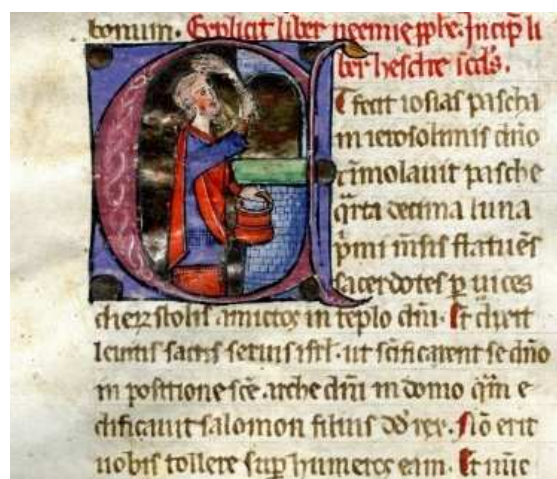 bonum. Explicit liber neemie pphe. Incip li
ber hesdre scds.
Et fecit iosias pascha
in ierosolimis dno
et imolavit pasche
qrta decima luna
pmi msis statues
sacerdotes p vices
dier stolis amictos in teplo dni. Et dixit
levitis sacris servis isrl. ut scificarent se dno
in positione sce. arche dni in domo qm e
dificavit salomon filius dd rex. No erit
vobis tollere sup humeros eam. Et nuc